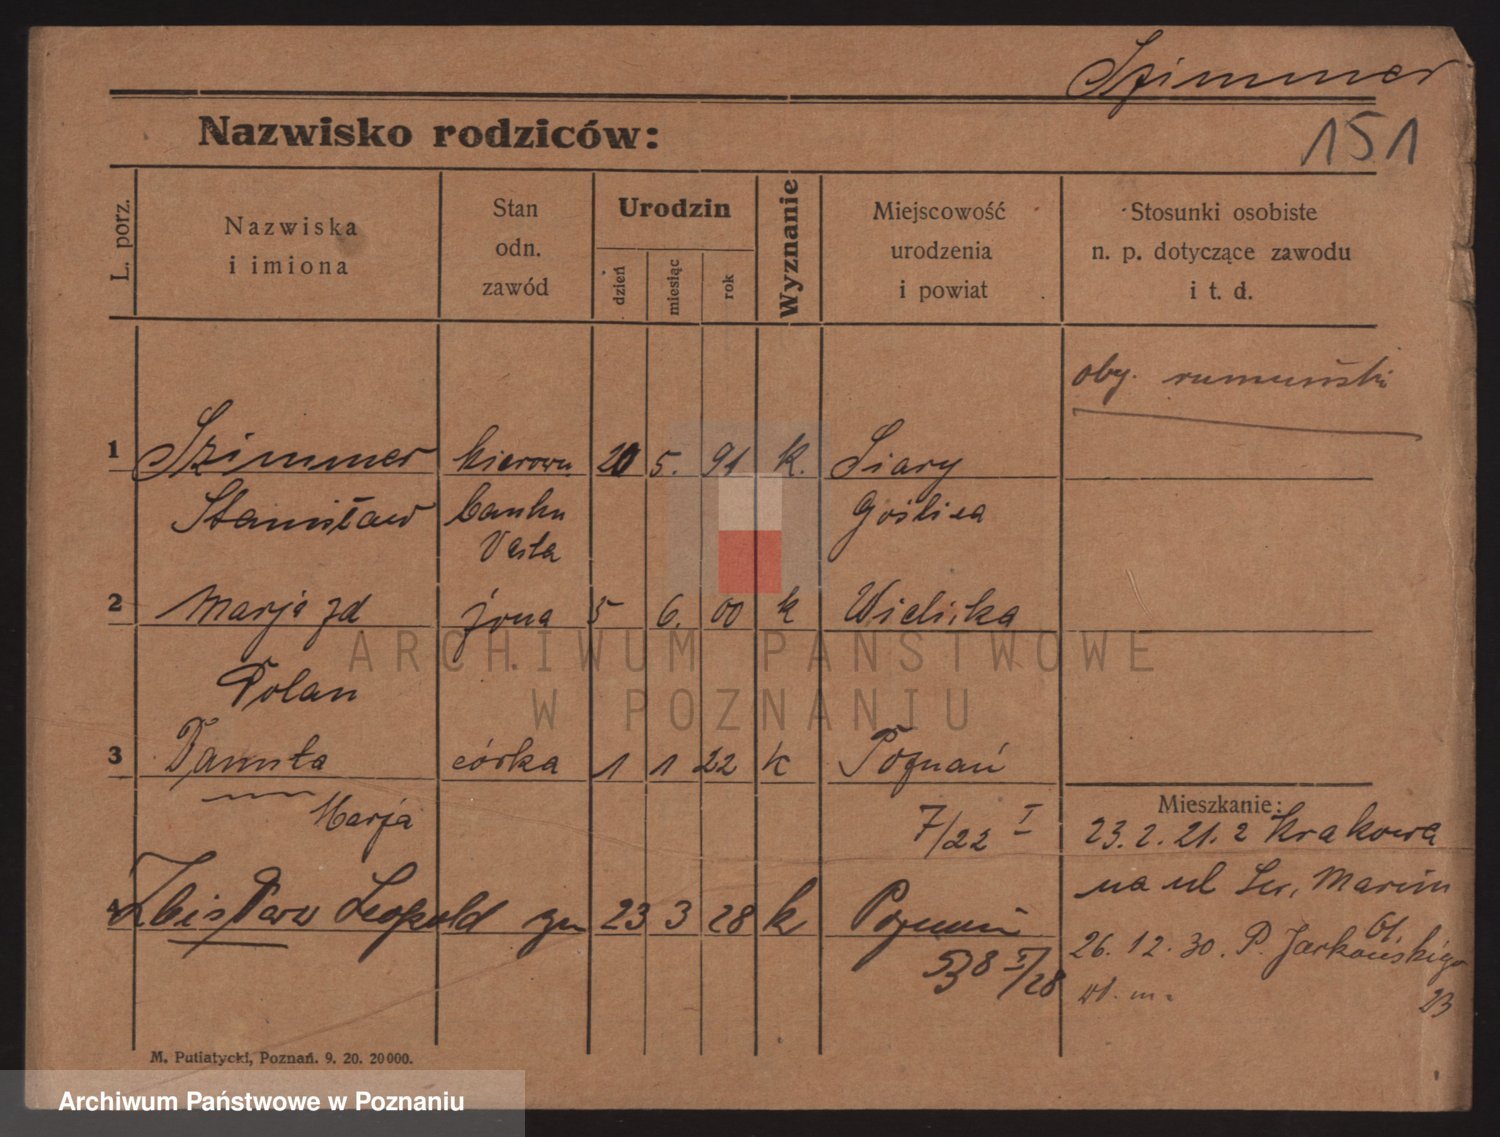 Szimmer
Nazwisko rodziców:
151
L. porz.
Nazwiska
i imiona
Stan
odn.
zawód
Urodzin
dzień
miesiąc
rok
Wyznanie
Miejscowość
urodzenia
i powiat
Stosunki osobiste
n. p. dotyczące zawodu
i t. d.
oby. rumuński
1 Szimmer kierown 20 5. 91 k. Siary
Stanisław banku Gorlice
Vesta
2 Marja zd żona 5 6. 00 k Wieliczka
Polan
3 Danuta córka 1 1 22 k Poznań
Marja 7/22 I
Mieszkanie:
23. 2. 21. z Krakowa
na ul Św. Marcin
4 Zbisław Leopold syn 23 3 28 k Poznań
61
26. 12. 30. P. Jarkowskiego
538 I/28
wł. m. 23
M. Putiatycki, Poznań. 9. 20. 20000.
ARCHIWUM PAŃSTWOWE
W POZNANIU
Archiwum Państwowe w Poznaniu